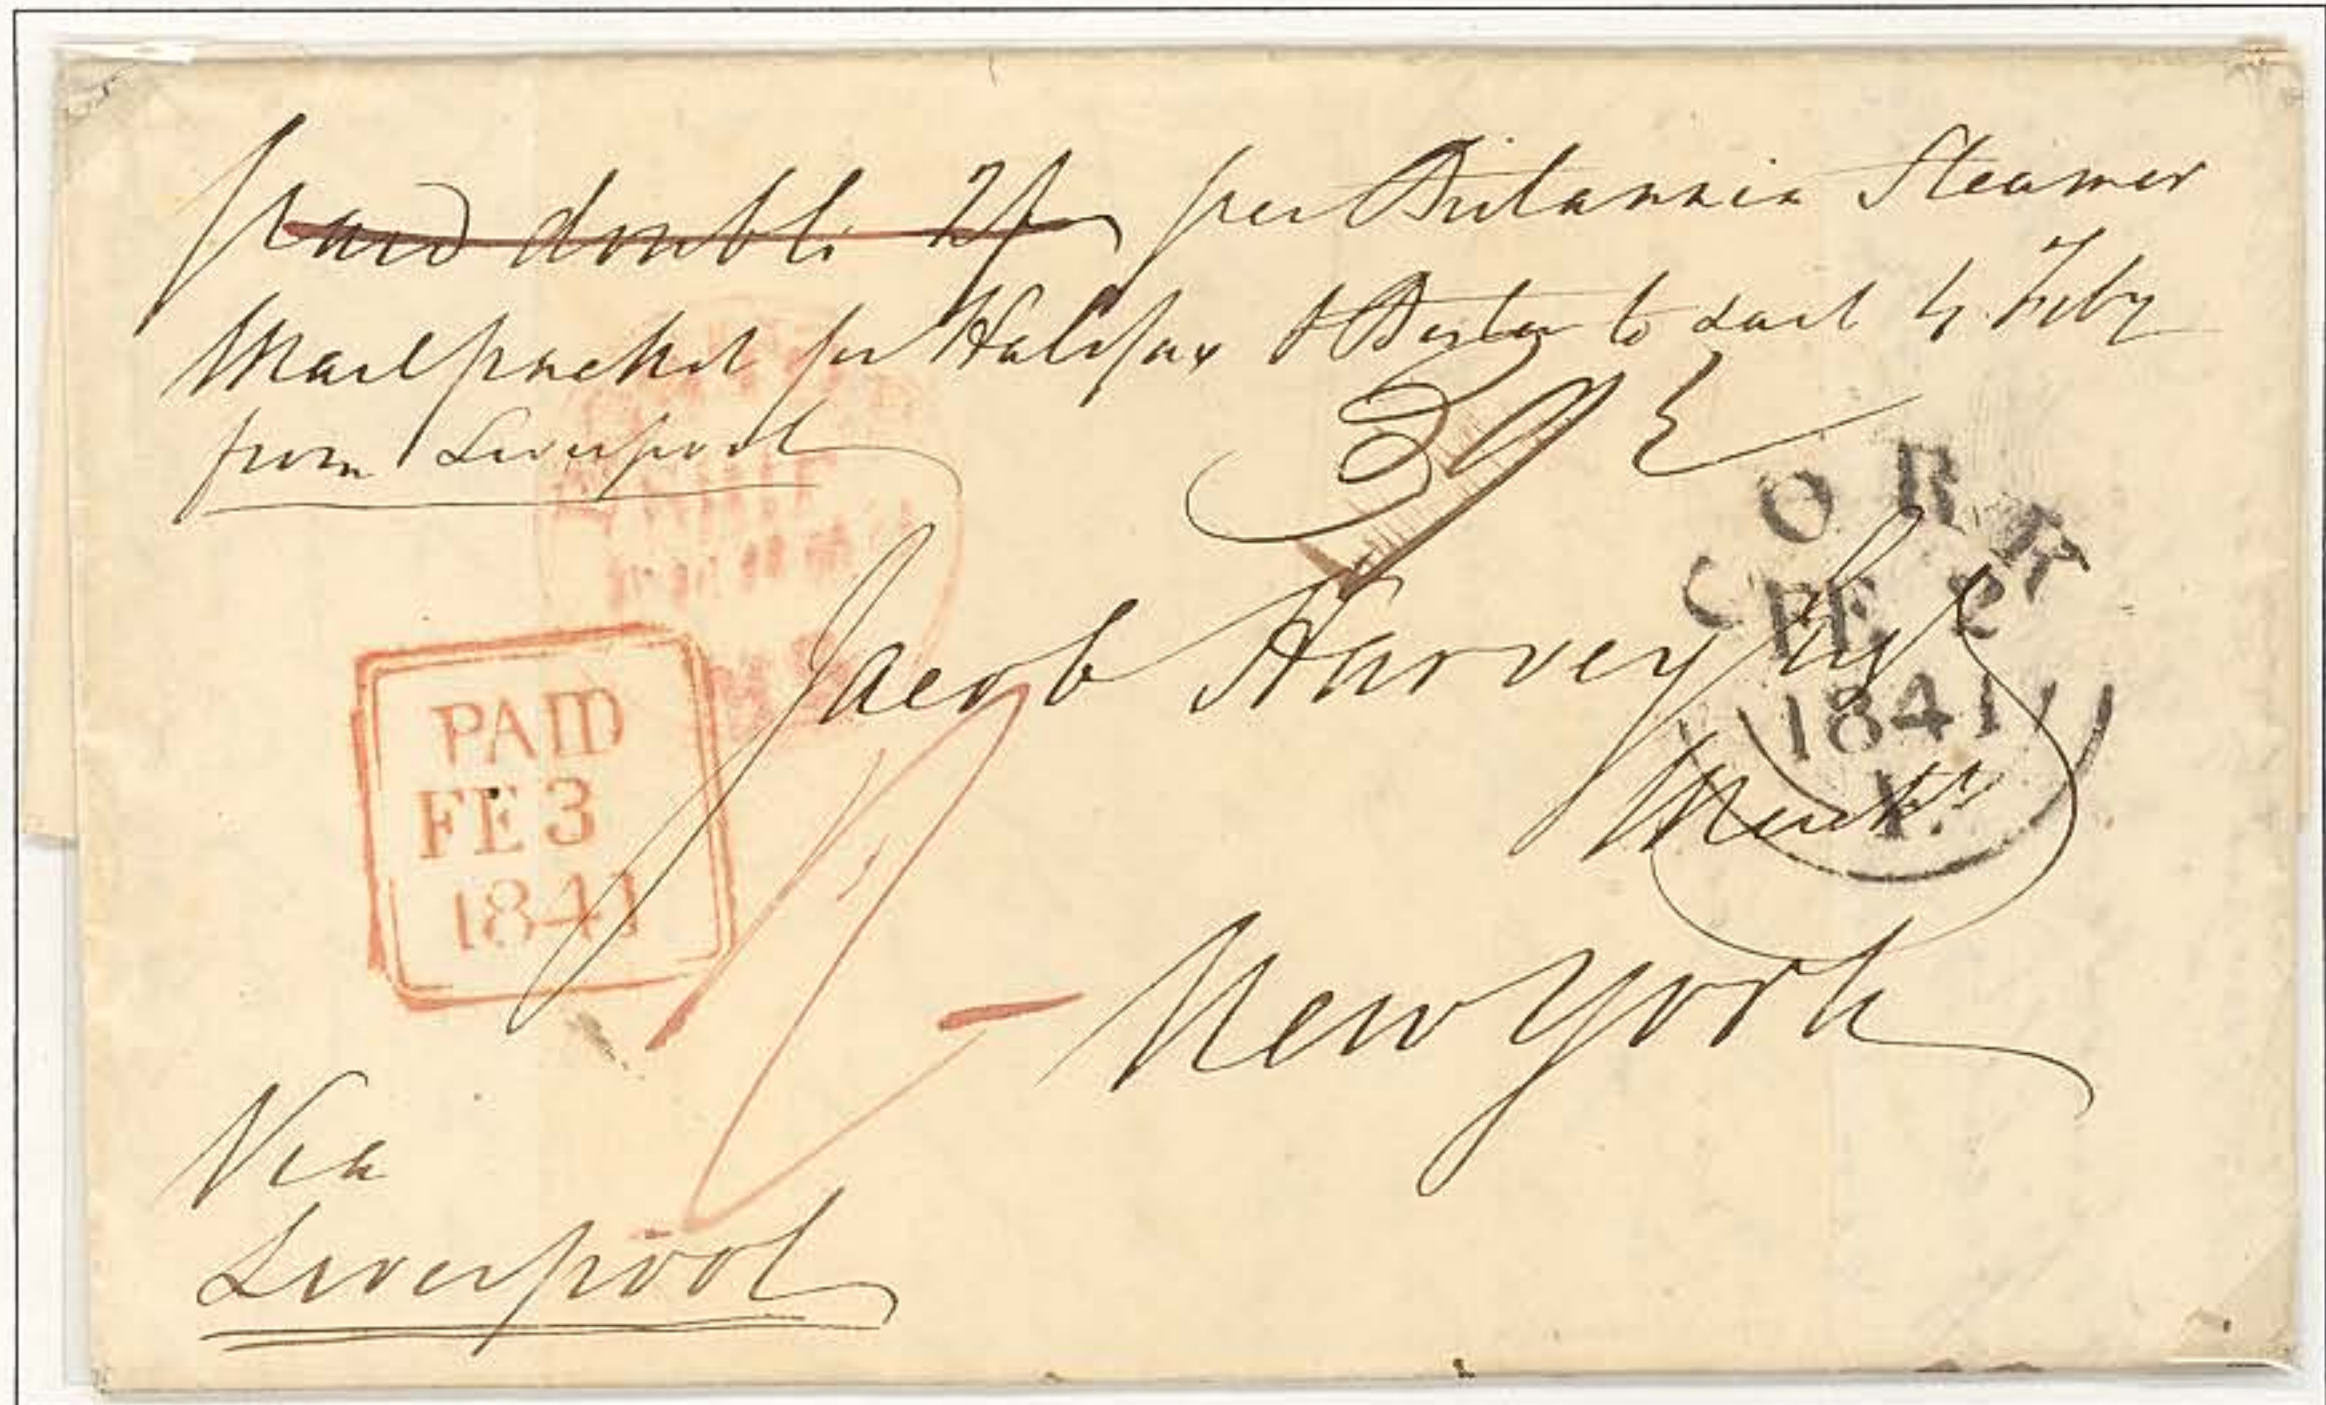 paid double 2/ per Britannia Steamer
Mail packet for Halifax & Boston to sail 4 Feby
from Liverpool
39
CORK
FE 2
1841
Jacob Harvey Esqr
Mercht
PAID
FE 3
1841
1/-
New York
Via
Liverpool